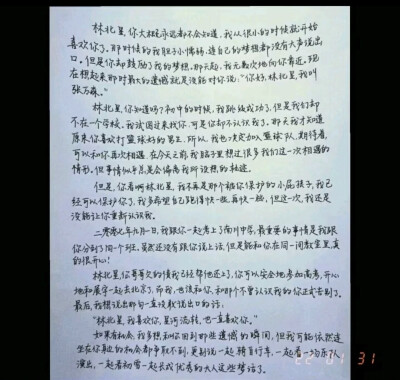 林北星，你大概永远都不会知道，我从很小的时候就开始
喜欢你了。那时候的我胆小懦弱，连自己的梦想都没有大声说出
口。但是你却鼓励了我的梦想。那天起，我无数次地向你靠近。现
在想起来那时最大的遗憾就是没能对你说，“你好，林北星，我叫
张万森。”
林北星，你知道吗？初中的时候，我跳级成功了，但是我们却
不在一个学校。我试图过来找你，可是你却不认识我了。那天我才知道
原来你喜欢打篮球好的男生，所以，我也决定加入篮球队，期待着
可以和你再次相遇。在今天之前，我脑子里想过很多我们这一次相遇的
情形。但事情似乎总是会偏离我所设想的轨迹。
但是，你看啊林北星，我不再是那个被你保护的小屁孩了，我已
经可以保护你了，我多希望自己跑得快一些，再快一些，但这一次，我还是
没能让你重新认识我。
二零零七年九月一日，我跟你一起考上了南川中学，最重要的事情是我跟
你分到了同一个班，虽然还没有跟你说上话，但是能和你在同一间教室里，真
的很开心！
林北星，你哥哥欠的债我已经帮他还上了，你可以安全地参加高考，开心
地和展宇一起去北京了，而我，也该和你，和那个不曾认识我的你正式告别了。
最后，我想说出那句一直没敢说出口的话：
“林北星，我喜欢你，星河流转，也一直喜欢你。”
如果有机会，我多想和你回到那些遗憾的瞬间，但我可能依然连
坐在你身边的机会都争取不到，更别说一起骑自行车，一起看一场乐队
演出，一起看初雪一起长成优秀的大人这些梦话了。
22 01 31